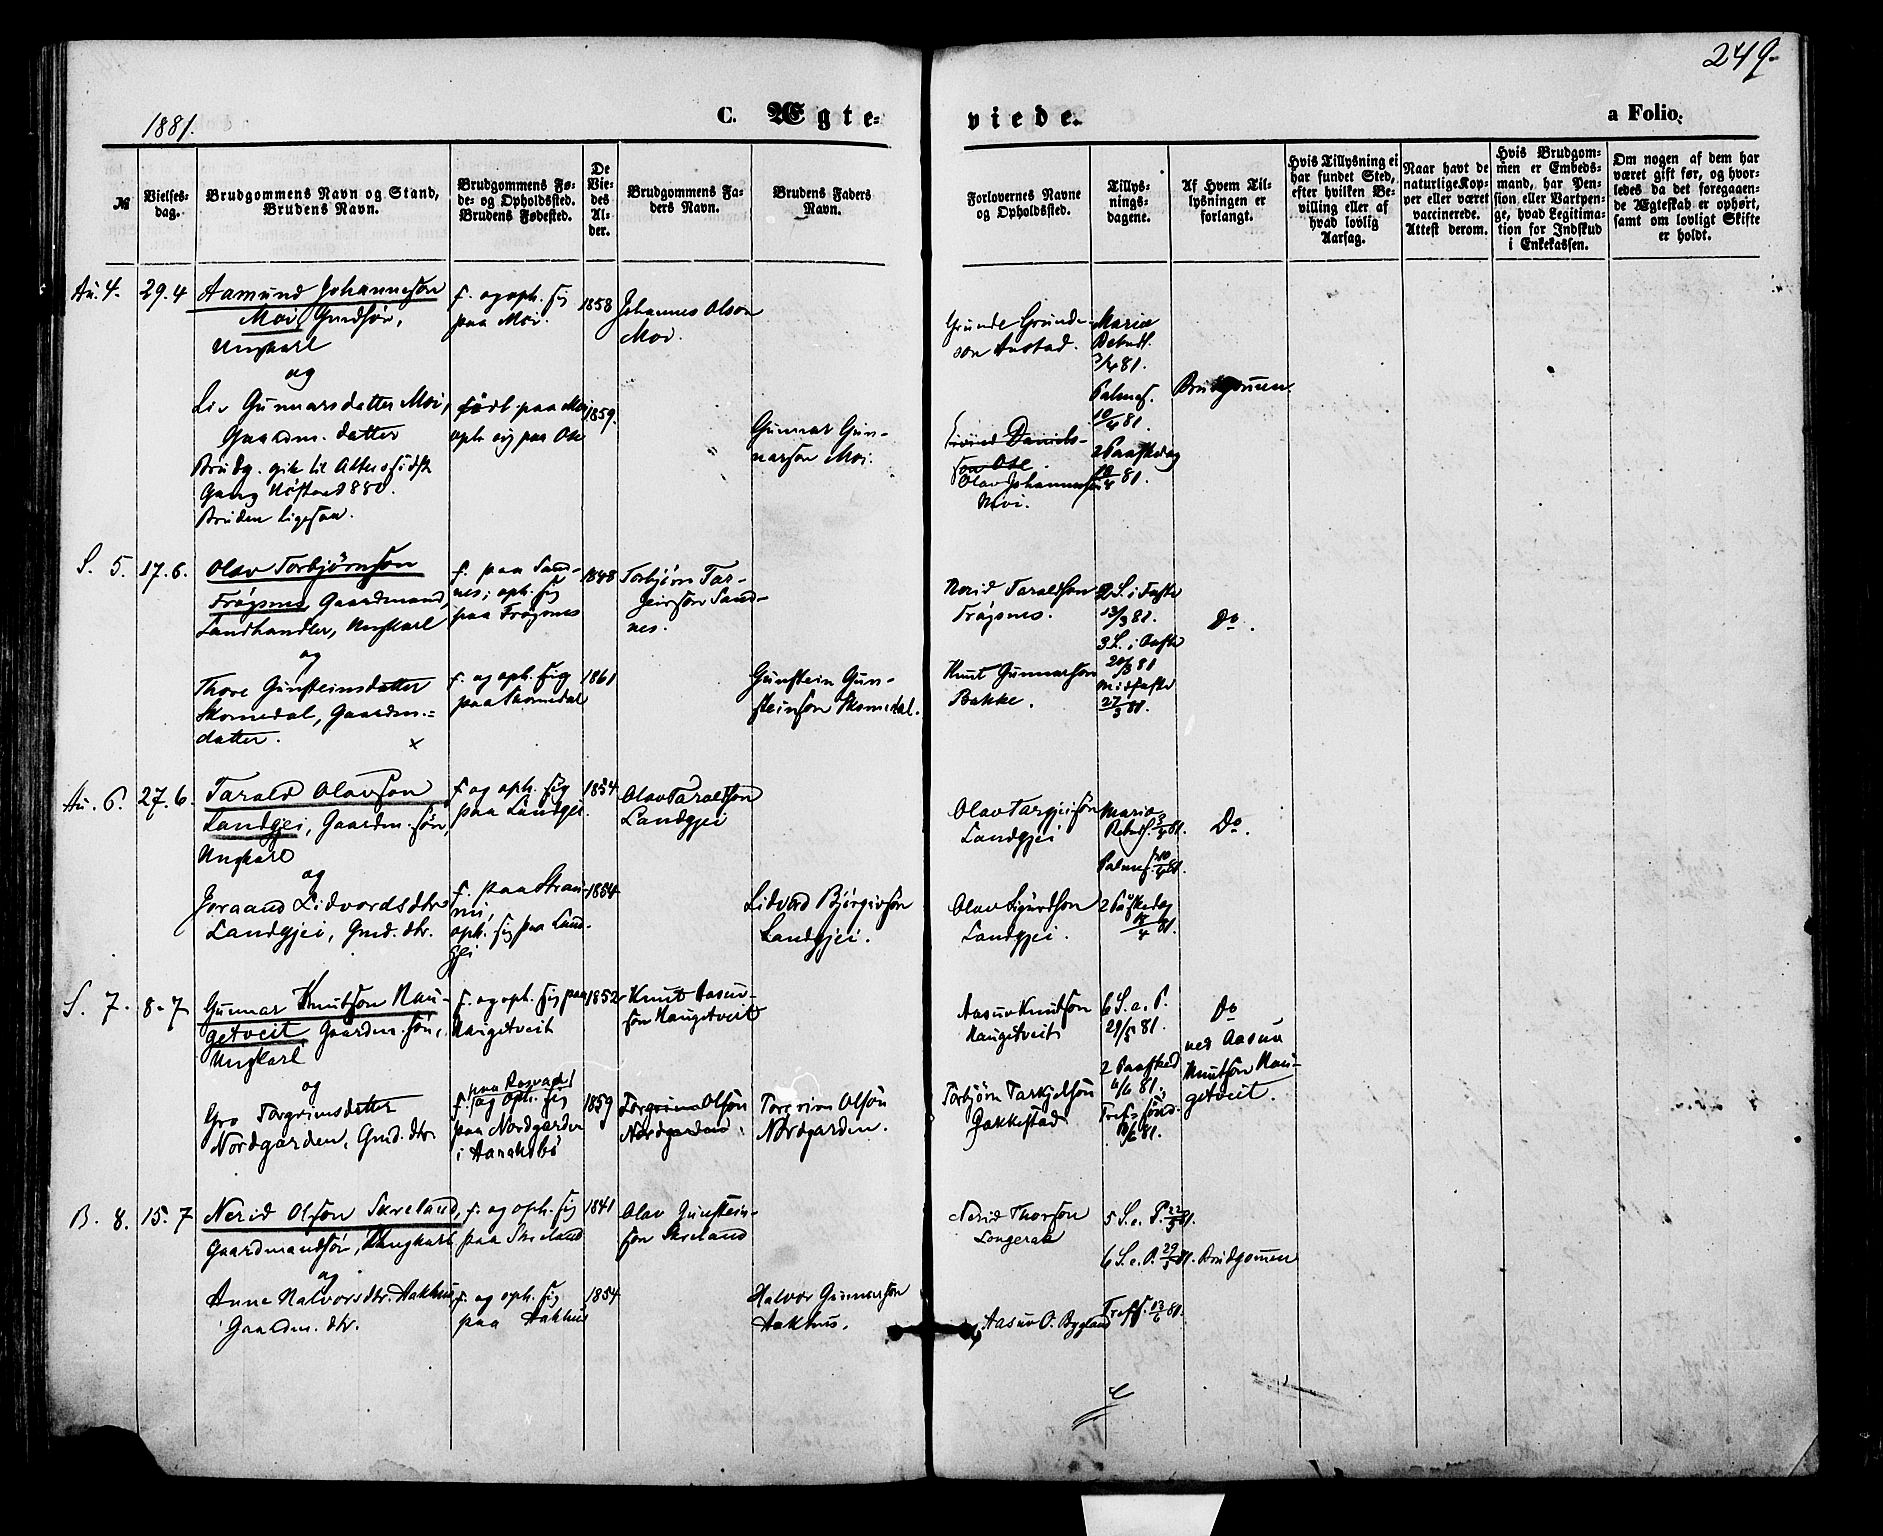 249.
1881.
C. Ægte-
viede.
a Folio.
№
Vielses-
dag.
Brudgommens Navn og Stand,
Brudens Navn.
Brudgommens Fø-
de- og Opholdssted.
Brudens Fødested.
De
Vie-
des
Al-
der.
Brudgommens Fa-
ders Navn.
Brudens Faders
Navn.
Forlovernes Navne
og Opholdssted.
Tillys-
nings-
dagene.
Af Hvem Til-
lysningen er
forlangt.
Hvis Tillysning ei
har fundet Sted,
efter hvilken Be-
villing eller af
hvad lovlig
Aarsag.
Naar havt de
naturlige Kop-
per eller været
vaccinerede.
Attest derom.
Hvis Brudgom-
men er Embeds-
mand, har Pen-
sion eller Vartpen-
ge, hvad Legitima-
tion for Indskud
i Enkekassen.
Om nogen af dem har
været gift før, og hvor-
ledes da det foregaaen-
de Ægteskab er ophørt,
samt om lovligt Skifte
er holdt.
Au. 4.
29.4
Aamund Johannesson
Moi, Gmdsøn,
Ungkarl
og
Liv Gunnarsdatter Moi,
Gaardm. datter
Brudg. gik til Alters sidste
Gang Høsten 1880.
Bruden ligesaa.
f. og oph. sig
paa Moi.
født paa Moi
oph. sig paa Ose
1858
1859.
Johannes Olson
Moi.
Gunnar Gun-
narson Moi.
Grunde Grunde-
son Austad.
Eivind Daniels-
son Ose.
Olav Johannesson
Moi.
Mariæ
Bebudl.
3/4 81.
Palmes.
10/4 81.
2 Paaskedag
18/4 81.
Brudgommen.
S. 5.
17.6.
Olav Torbjørnson
Frøysnes, Gaardmand,
Landhandler, Ungkarl
og
Thore Gunsteinsdatter
Skomedal, Gaardm.-
datter.
x
f. paa Sand-
nes; oph. sig
paa Frøysnes
f. og oph. sig
paa Skomedal
1848
1861
Torbjørn Tar-
jeison Sand-
nes.
Gunstein Gun-
steinson Skomedal.
Nerid Taraldson
Frøysnes.
Knut Gunnarson
Bakke.
2 S. i Faste
13/3 81.
3 S. i Faste
20/3 81
Midfaste
27/3 81.
Do.
Au. 6.
27.6.
Tarald Olavson
Landgjei, Gaardm. søn,
Ungkarl
og
Joraand Lidvordsdtr
Landgjei, Gmd. dtr.
f. og oph. sig
paa Landgjei.
f. paa Strau-
mi,
oph. sig paa Land-
gjei
1854
1854
Olav Taraldson
Landgjei
Lidvord Bjørgivson
Landgjei.
Olav Targjeison
Landgjei
Olav Sigurdson
Landgjei.
Mariæ
Bebud. 3/4 81.
Palmes. 10/4 81.
2 Paaskedag
18/4 81.
Do.
S. 7.
8.7
Gunnar Knutson Hau-
getveit, Gaardm. søn,
Ungkarl
og
Gro Torgrimsdatter
Nordgarden, Gmd. dtr
f. og oph. sig paa
Haugetveit
f. paa Rosvad
og oph. sig
paa Nordgarden
i Aaraksbø
1852
1859
Knut Aasuv-
søn Haugetveit
Torgrim Olson
Nordgarden.
Torgrim Olson
Nordgarden.
Aasuv Knutson
Haugetveit
Torbjørn Tarkjelson
Gakkestad
6 S. e. P.
29/5 81.
2 Pinsed
6/6 81.
Tref. sønd.
81.
Do
ved Aasuv
Knutson Hau-
getveit.
B. 8.
15.7
Nerid Olson Skreland,
Gaardmandsøn, Ungkarl
og
Anne Halvorsdtr. Aakhus,
Gaardm. dtr.
f. og oph. sig
paa Skreland
f. og oph. sig
paa Aakhus
1841
1854
Olav Gunstein-
son Skreland
Halvor Gunnarson
Aakhus.
Nerid Thorson
Longerak
Aasuv O. Bygland
5 S. e. P. 22/5 81.
6 S. e. P. 29/5 81.
Tref. 12/6 81.
Brudgommen